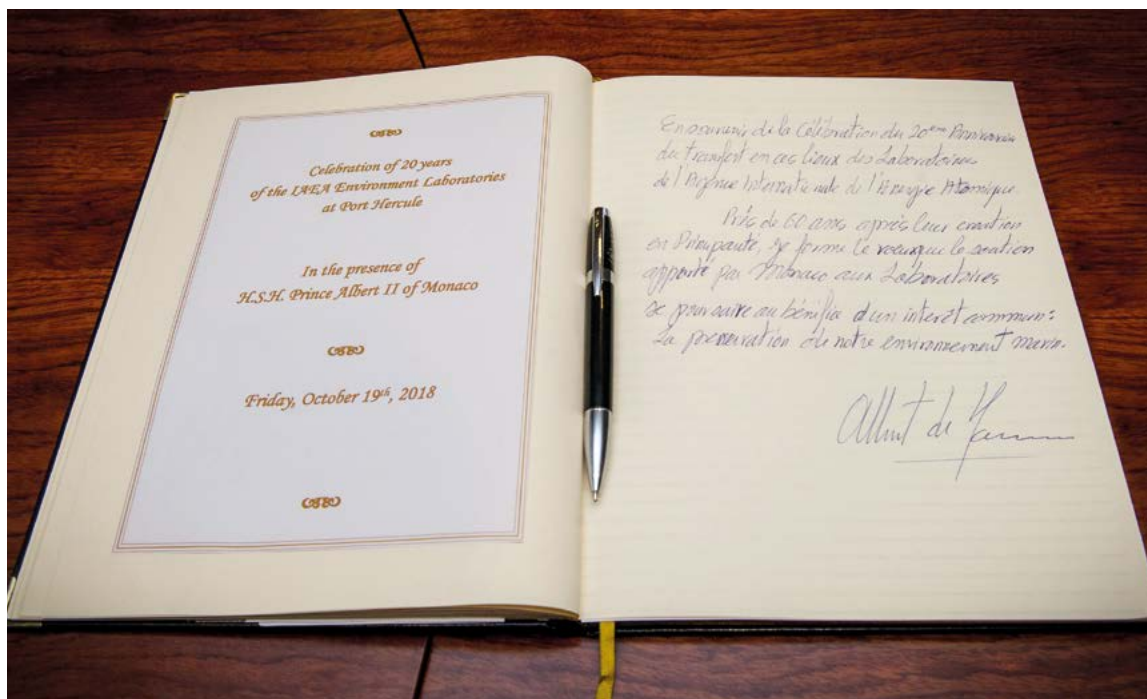 Celebration of 20 years
of the IAEA Environment Laboratories
at Port Hercule
In the presence of
H.S.H. Prince Albert II of Monaco
Friday, October 19th, 2018
En souvenir de la Célébration du 20ème Anniversaire
du transfert en ces lieux des Laboratoires
de l'Agence Internationale de l'Energie Atomique.
Près de 60 ans après leur création
en Principauté, je forme le voeu que le soutien
apporté par Monaco aux Laboratoires
se poursuive au bénéfice d'un intérêt commun :
la préservation de notre environnement marin.
Albert de Monaco